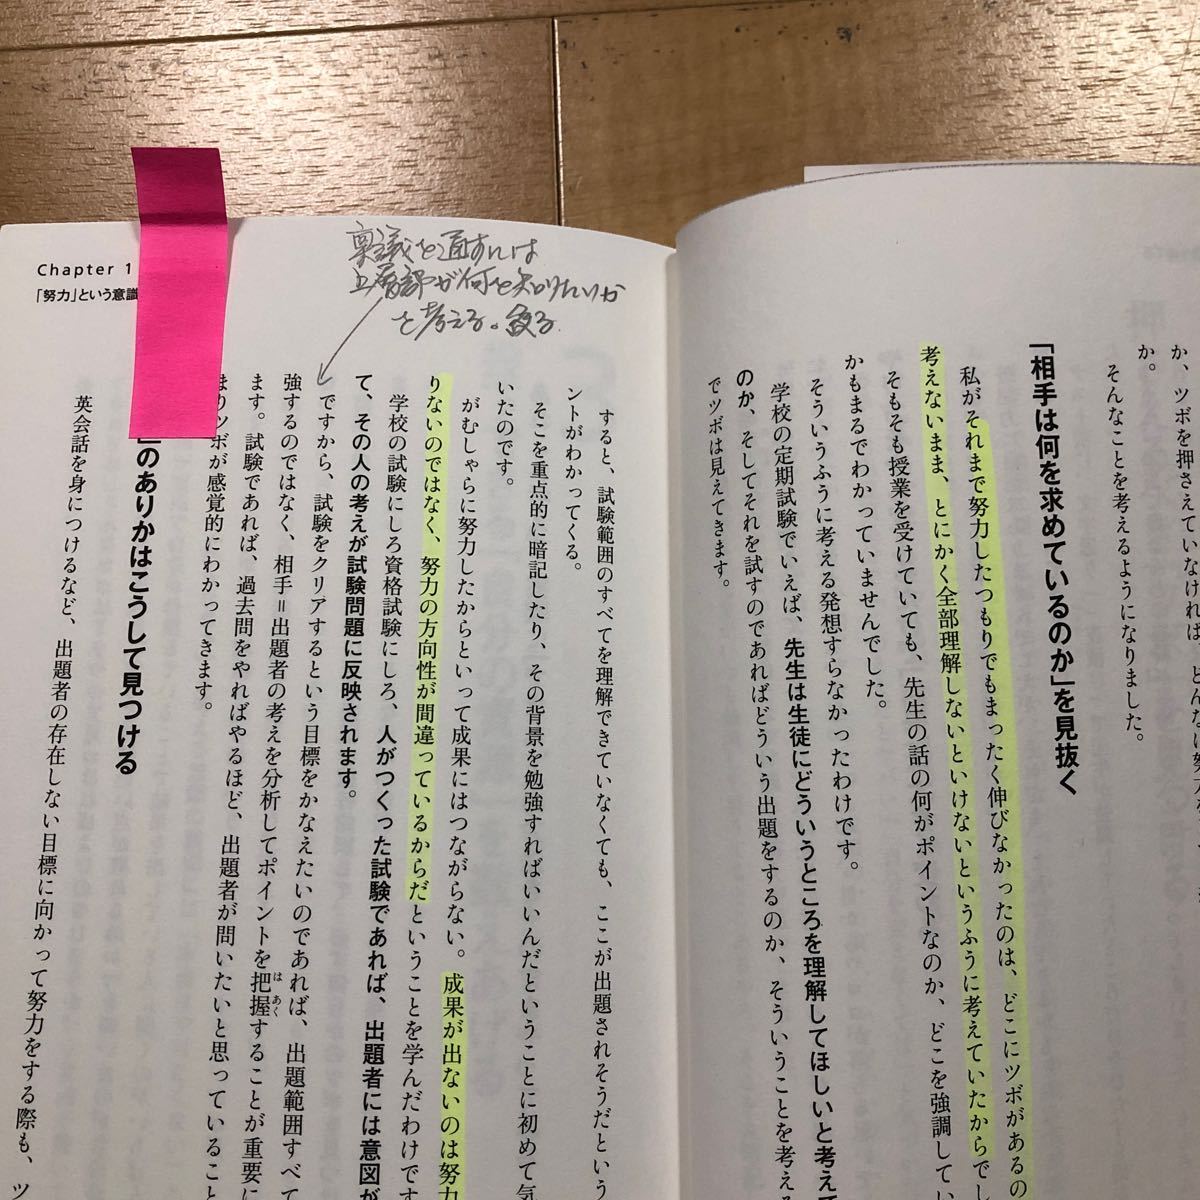 か、ツボを押さえていなければ、どんなに努力
か。
そんなことを考えるようになりました。
「相手は何を求めているのか」を見抜く
私がそれまで努力したつもりでもまったく伸びなかったのは、どこにツボがあるの
考えないまま、とにかく全部理解しないといけないというふうに考えていたからでし
そもそも授業を受けていても、先生の話の何がポイントなのか、どこを強調してい
かもまるでわかっていませんでした。
そういうふうに考える発想すらなかったわけです。
学校の定期試験でいえば、先生は生徒にどういうところを理解してほしいと考えて
のか、そしてそれを試すのであればどういう出題をするのか、そういうことを考える
でツボは見えてきます。
Chapter 1
「努力」という意識
稟議を通すには
上層部が何を知りたいか
を考える。絞る
すると、試験範囲のすべてを理解できていなくても、ここが出題されそうだという
ントがわかってくる。
そこを重点的に暗記したり、その背景を勉強すればいいんだということに初めて気
いたのです。
がむしゃらに努力したからといって成果にはつながらない。成果が出ないのは努力
りないのではなく、努力の方向性が間違っているからだということを学んだわけです
学校の試験にしろ資格試験にしろ、人がつくった試験であれば、出題者には意図が
て、その人の考えが試験問題に反映されます。
ですから、試験をクリアするという目標をかなえたいのであれば、出題範囲すべて
強するのではなく、相手＝出題者の考えを分析してポイントを把握することが重要に
はあく
ます。試験であれば、過去問をやればやるほど、出題者が問いたいと思っていること
まりツボが感覚的にわかってきます。
」のありかはこうして見つける
英会話を身につけるなど、出題者の存在しない目標に向かって努力をする際も、ツ